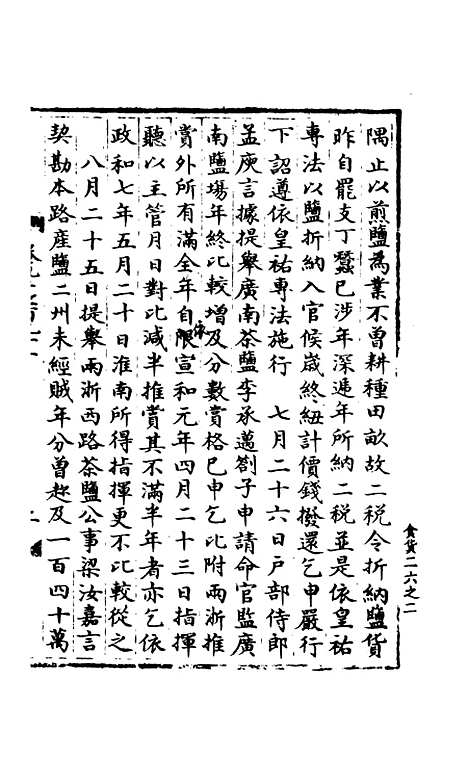 隅止以煎鹽為業不曽耕種田畝故二税令折納鹽貨
昨自罷支丁蠶已涉年深遞年所納二税並是依皇祐
專法以鹽折納入官候歳終紐計價錢撥還乞申嚴行
下詔遵依皇祐專法施行　七月二十六日戶部侍郎
孟庾言據提舉廣南茶鹽李承邁劄子申請命官監廣
南鹽場年終比較增及分數賞格已申乞比附兩浙推
賞外所有滿全年自限宣和元年四月二十三日指揮
依
聽以主管月日對比減半推賞其不滿半年者亦乞依
政和七年五月二十日淮南所得指揮更不比較從之
八月二十五日提舉兩浙西路茶鹽公事梁汝嘉言
契勘本路産鹽二州未經賊年分曽趂及一百四十萬
食貨二六之二